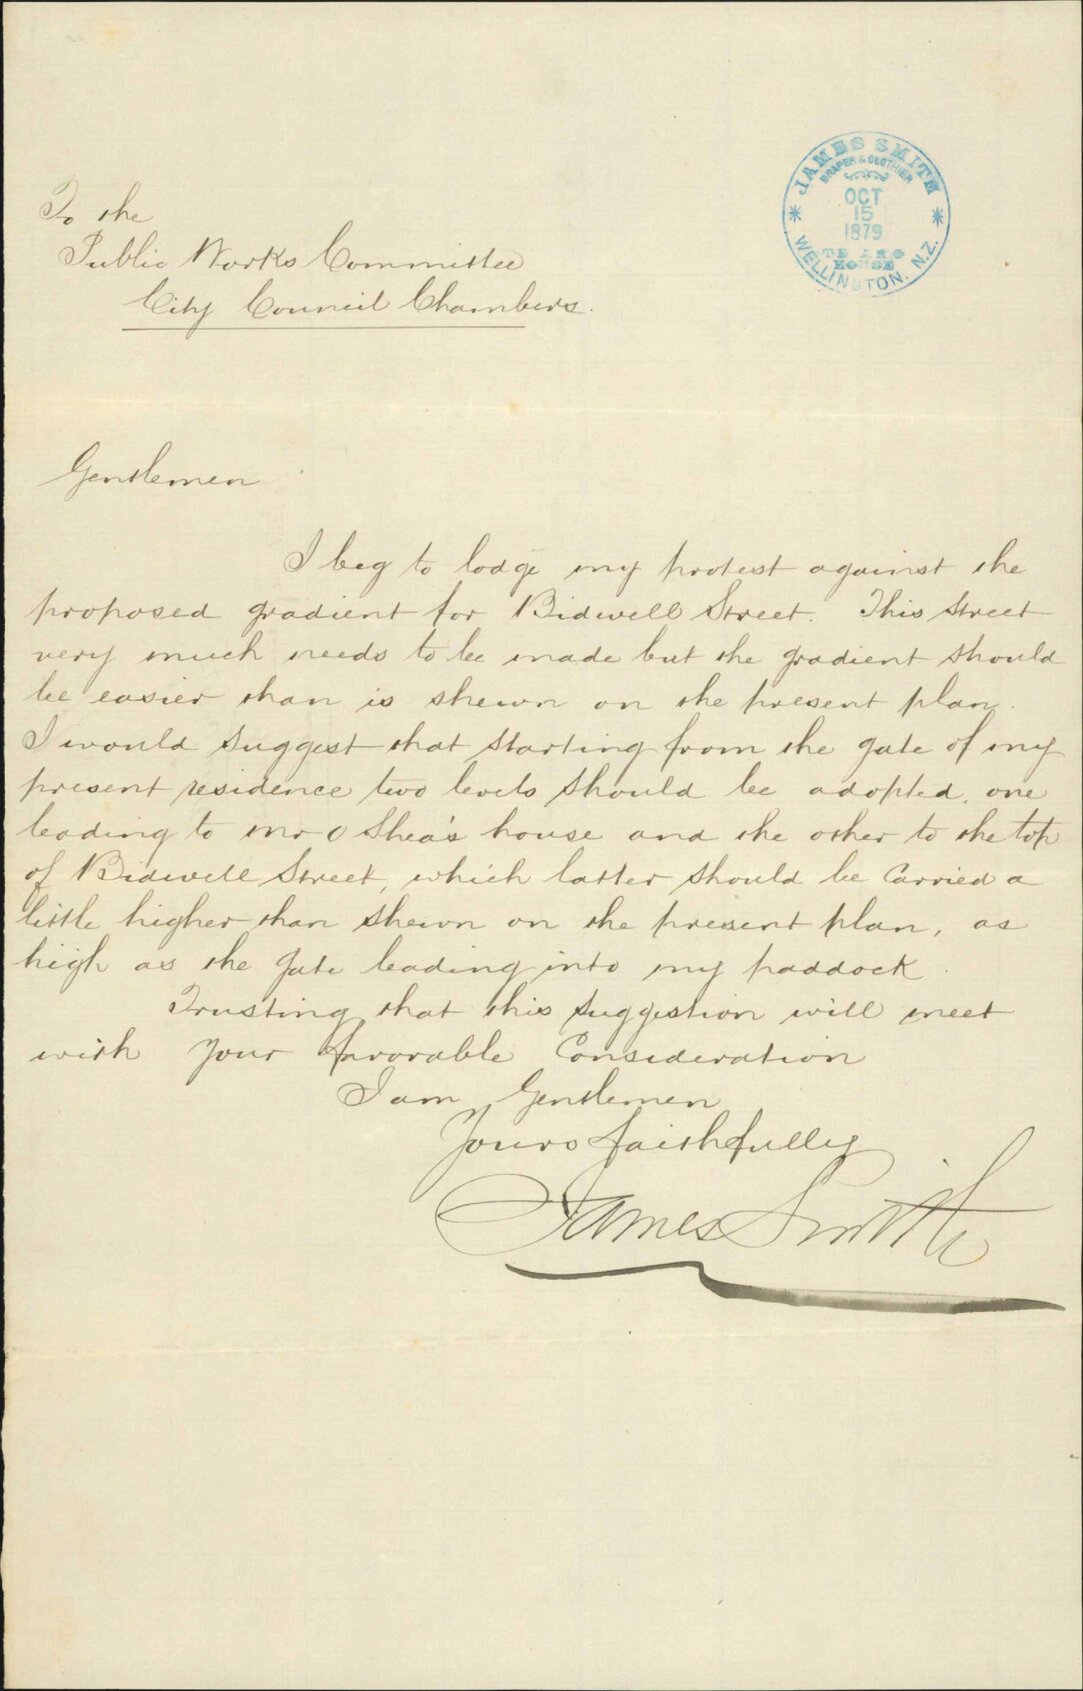 JAMES SMITH
DRAPER & CLOTHIER
OCT
15
1879
TE ARO
HOUSE
WELLINGTON. N.Z.
To the
Public Works Committee
City Council Chambers.
Gentlemen
I beg to lodge my protest against the
proposed gradient for Bidwell Street. This Street
very much needs to be made but the gradient should
be easier than is shewn on the present plan.
I would suggest that starting from the gate of my
present residence two levels should be adopted, one
leading to Mr O Shea's house and the other to the top
of Bidwell Street, which latter should be carried a
little higher than shewn on the present plan, as
high as the gate leading into my paddock.
Trusting that this suggestion will meet
with your favorable consideration
I am Gentlemen
Yours faithfully
James Smith